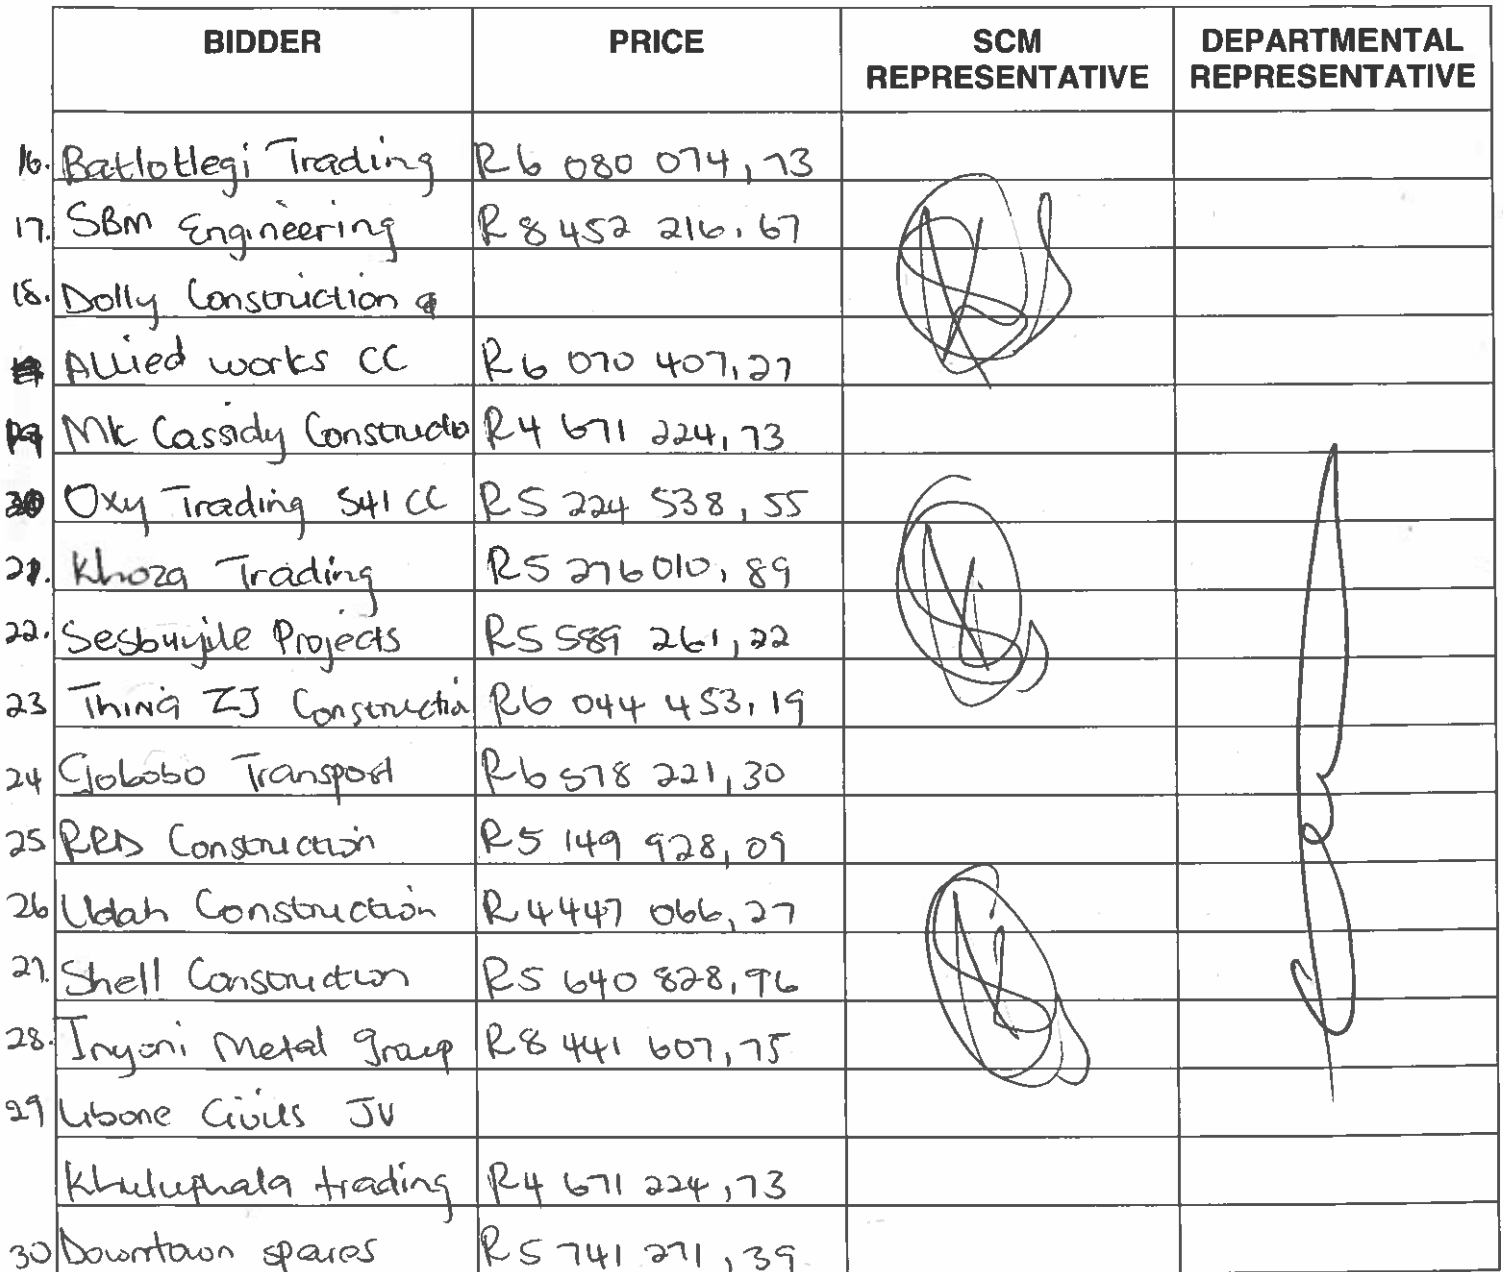 BIDDER PRICE SCM REPRESENTATIVE DEPARTMENTAL REPRESENTATIVE
16. Batlotlegi Trading R6 080 074,73
17. SBM Engineering R8 452 216,67
18. Dolly Construction &
Allied works CC R6 070 407,27
19 Mk Cassidy Constructio R4 671 224,73
20 Oxy Trading 541 CC R5 224 538,55
21. Khoza Trading R5 276 010,89
22. Sesbuyile Projects R5 589 261,22
23 Thina ZJ Construction R6 044 453,19
24 Gobobo Transport R6 578 221,30
25 RRD Construction R5 149 928,09
26 Udah Construction R4 447 066,27
27. Shell Construction R5 640 828,96
28. Inyoni Metal Group R8 441 607,75
29 Ubone Civils JV
Khuluphala trading R4 671 224,73
30 Downtown spares R5 741 271,39